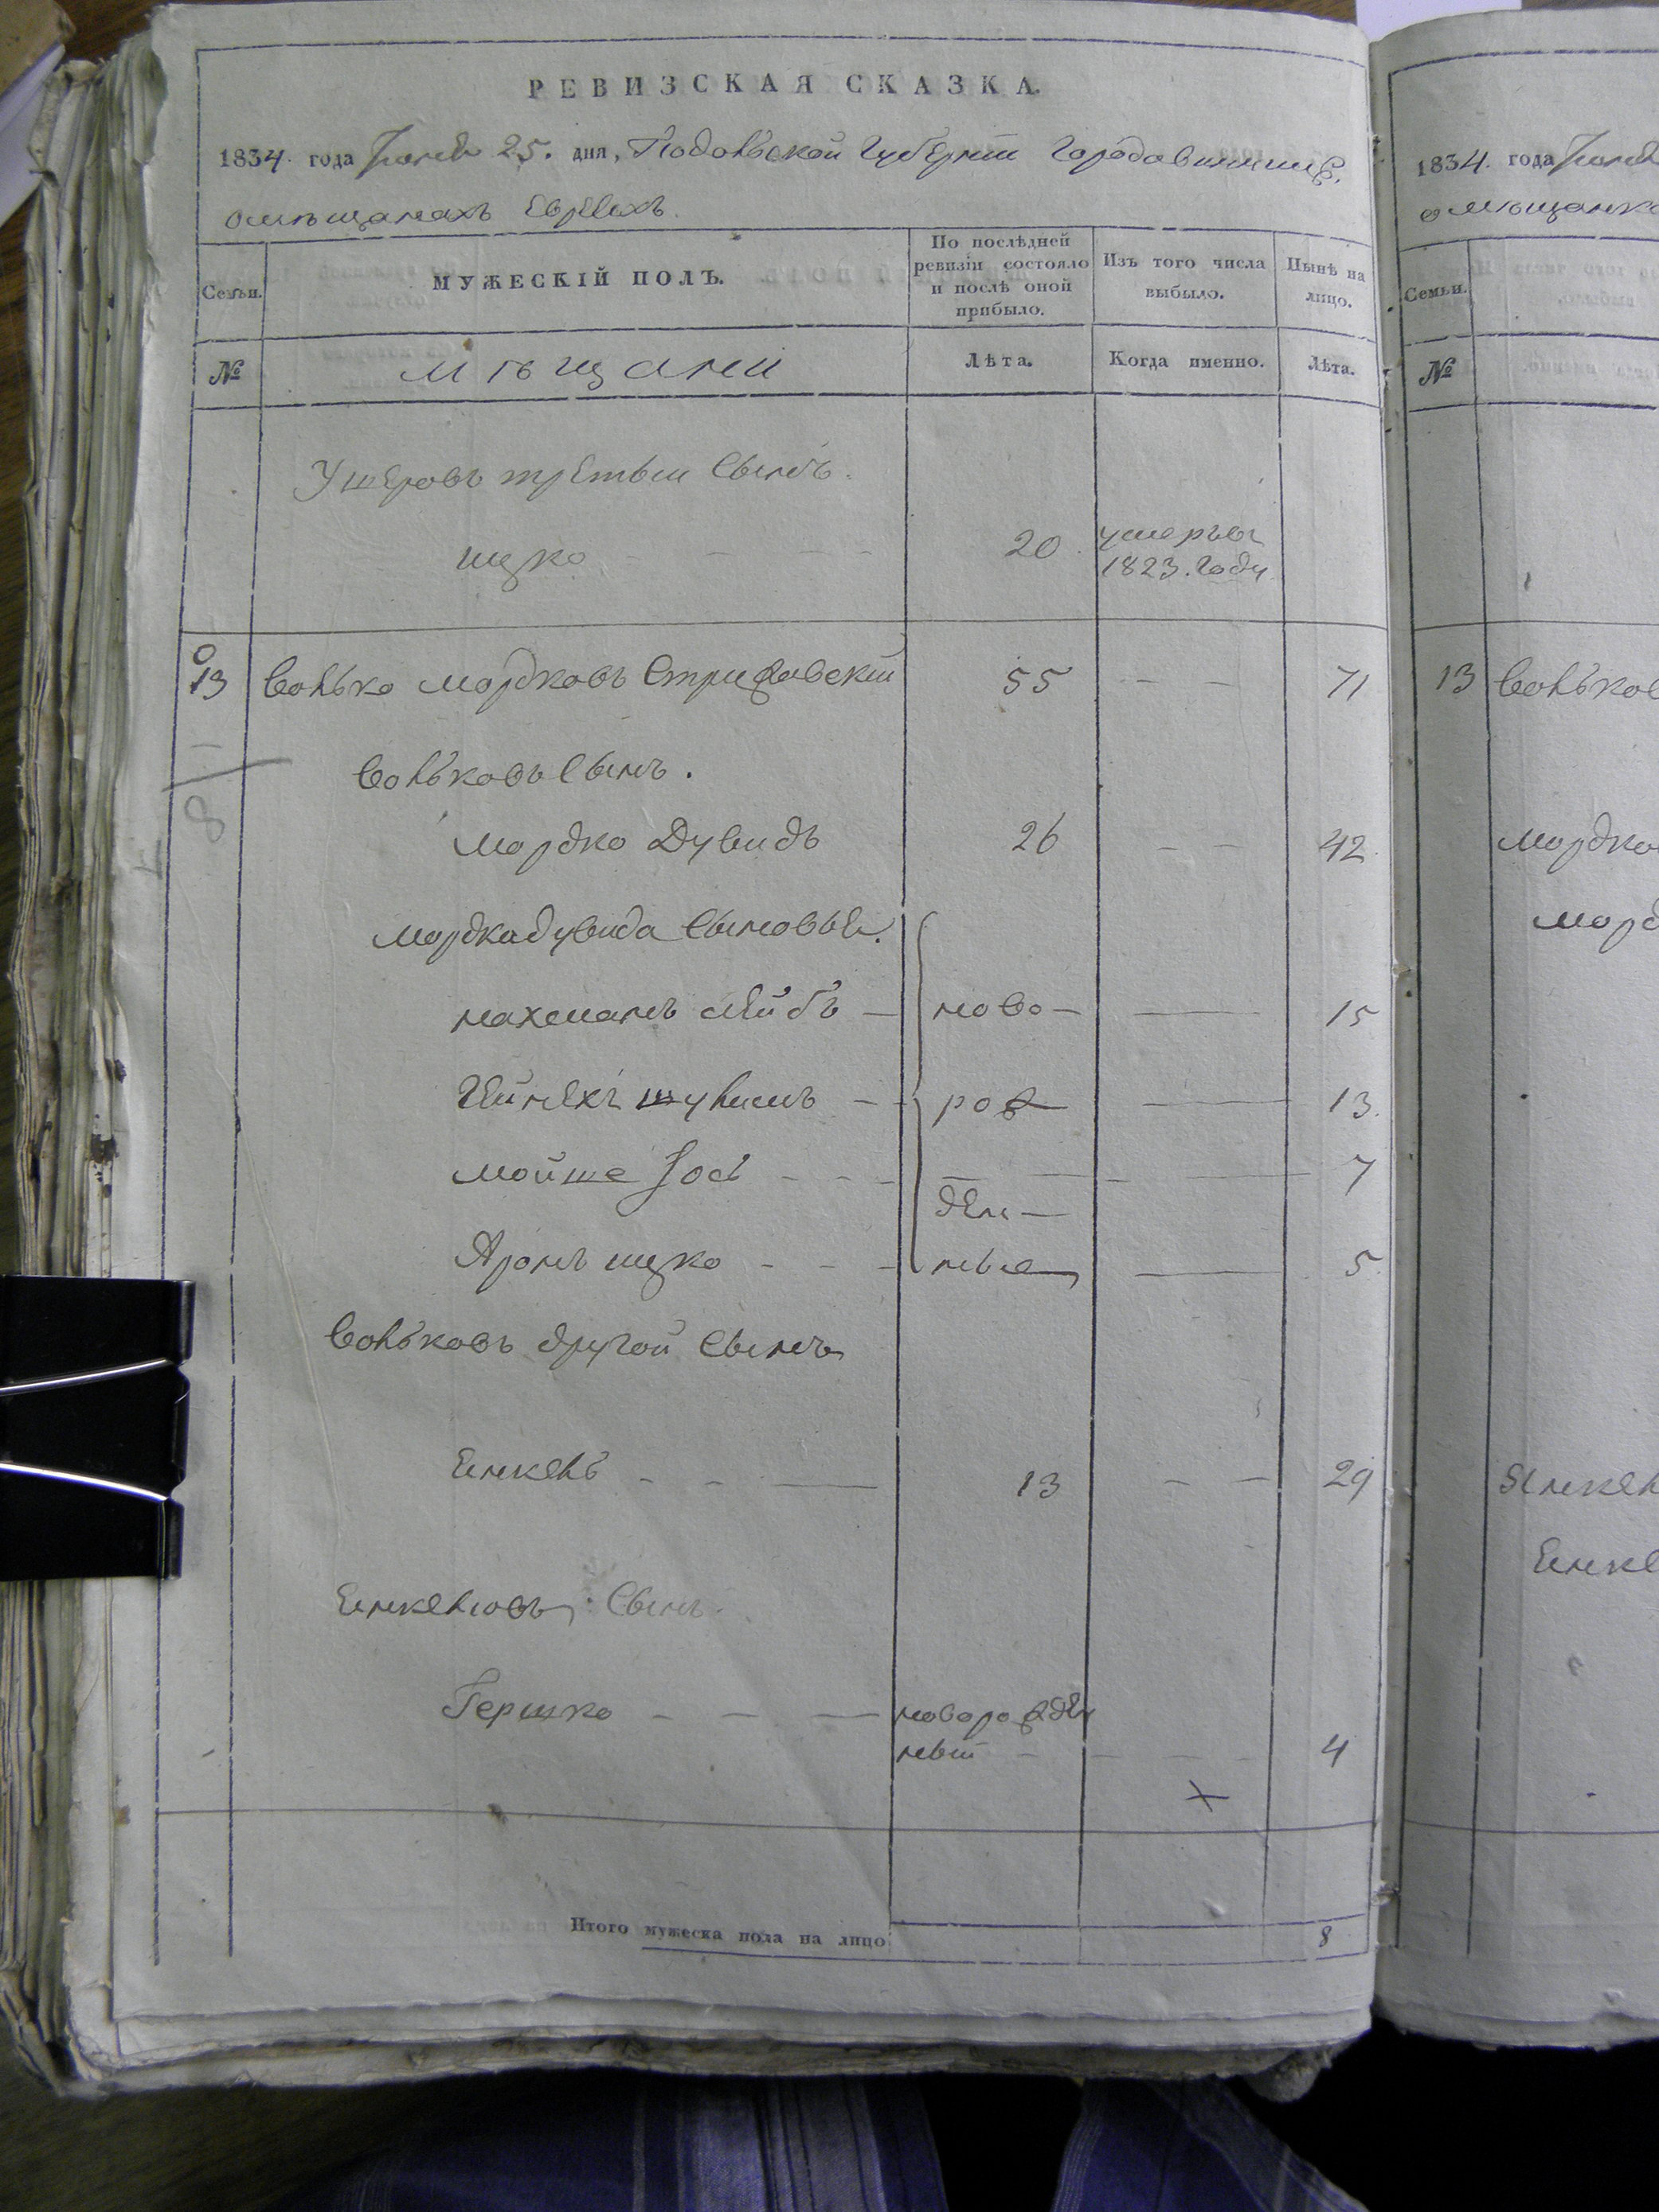 РЕВИЗСКАЯ СКАЗКА.
1834 года 25. дня, Подольской Губернии Города Винницы
о мѣщанахъ Евреяхъ.
Семьи.
МУЖЕСКІЙ ПОЛЪ.
По послѣдней ревизіи состояло и послѣ оной прибыло.
Изъ того числа выбыло.
Нынѣ на лицо.
№
мѣщане
Лѣта.
Когда именно.
Лѣта.
Ушеровъ третьи Сынъ.
ицко 20 умеръ въ
1823. Году
13 Волько Мордковъ 55 71
Вольковъ Сынъ.
Мордко Дувидъ 26 42
Мордкадувида Сыновья.
нахманъ лейбъ ново 15
шулимъ рож 13.
мойше Іось 7
ден
Аронъ ицко ныя 5
Вольковъ другой Сынъ
Енкель 13 29
Енкелювъ Сынъ.
Гершко новорожден
ный 4
Итого мужеска пола на лицо 8
1834. года
о мѣщанк
Семьи.
№
13 Вольков
Мордко
Морд
Янкел
Енке